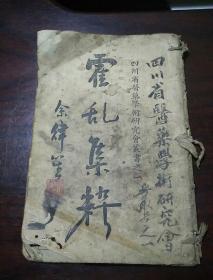 四川省醫藥學術研究會
四川省醫藥學術研究會叢書之一
霍乱集粹
余律笙